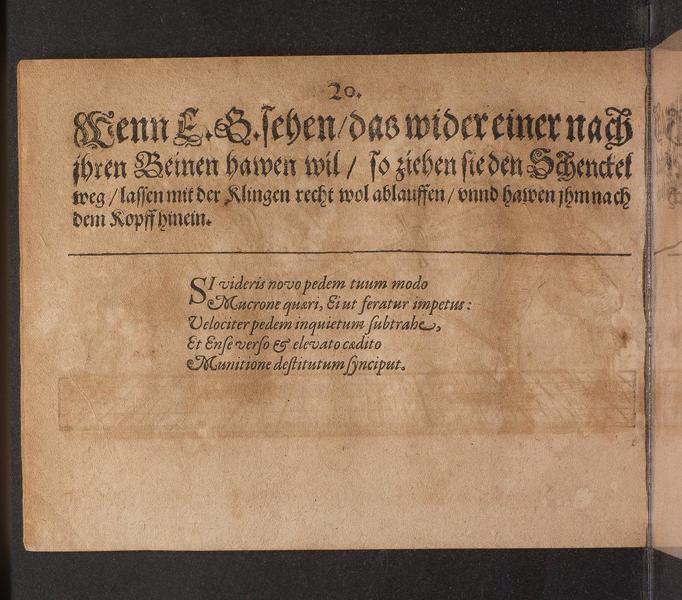 20.
Wenn E. G. sehen/das wider einer nach
jhren Beinen hawen wil / so ziehen sie den Schenckel
weg / lassen mit der Klingen recht wol ablauffen / vnnd hawen jhm nach
dem Kopff hinein.
SI videris novo pedem tuum modo
Mucrone quæri, Ei ut feratur impetus:
Velociter pedem inquietum subtrahe,
Et Ense verso & elevato cædito
Munitione destitutum synciput.